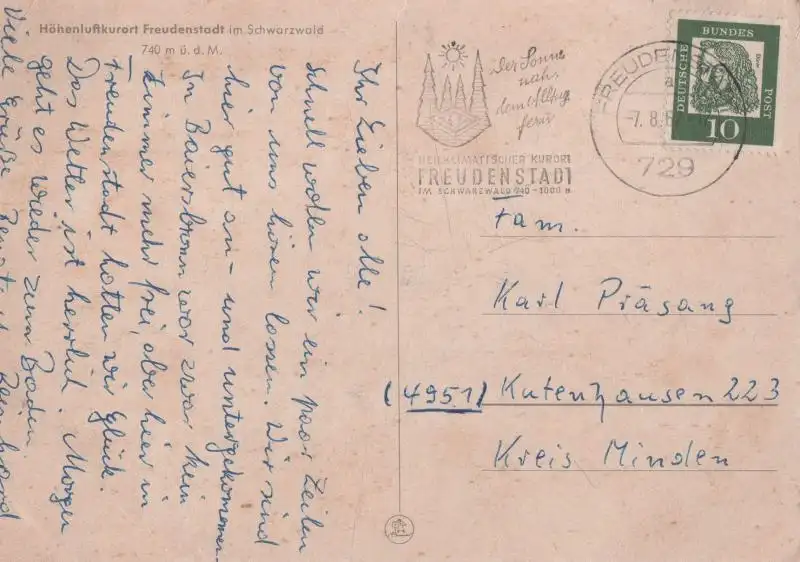 Höhenluftkurort Freudenstadt im Schwarzwald
740 m ü. d. M.
Ihr Lieben alle!
Schnell wollen wir ein paar Zeilen
von uns hören lassen. Wir sind
hier gut an- und untergekommen.
In Baiersbronn war zwar kein
Zimmer mehr frei, aber hier in
Freudenstadt hatten wir Glück.
Das Wetter ist herrlich. Morgen
geht es wieder zum Baden.
Viele Grüße
Der Sonne
nah,
dem Alltag
fern
HEILKLIMATISCHER KURORT
FREUDENSTADT
IM SCHWARZWALD 740-1000 m
FREUDEN
-7. 8. 6
729
DEUTSCHE BUNDES POST
10
Fam.
Karl Präsang
(4951) Kutenhausen 223
Kreis Minden